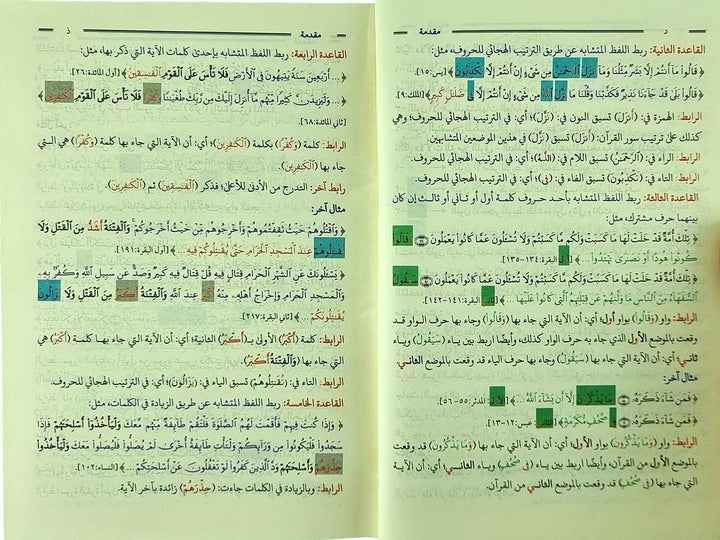 د
مقدمة
القاعدة الثانية: ربط اللفظ المتشابه عن طريق الترتيب الهجائي للحروف، مثل:
﴿ قَالُوا۟ مَآ أَنتُمْ إِلَّا بَشَرٌ مِّثْلُنَا وَمَآ أَنزَلَ ٱلرَّحْمَٰنُ مِن شَىْءٍ إِنْ أَنتُمْ إِلَّا تَكْذِبُونَ ﴾ [يس: ١٥].
﴿ قَالُوا۟ بَلَىٰ قَدْ جَآءَنَا نَذِيرٌ فَكَذَّبْنَا وَقُلْنَا مَا نَزَّلَ ٱللَّهُ مِن شَىْءٍ إِنْ أَنتُمْ إِلَّا فِى ضَلَٰلٍ كَبِيرٍ ﴾ [الملك: ٩].
الرابط: الهمزة في (أَنزَلَ) تسبق النون في (نَزَّلَ)؛ أي: في الترتيب الهجائي للحروف، وهي
كذلك على ترتيب سور القرآن: (أَنزَلَ) تسبق (نَزَّلَ) في هذين الموضعين المتشابهين.
الرابط: الراء في: (ٱلرَّحْمَٰنُ) تسبق اللام في: (ٱللَّهُ)؛ أي: في الترتيب الهجائي للحروف.
الرابط: التاء في: (تَكْذِبُونَ) تسبق الفاء في: (فِى)؛ أي: في الترتيب الهجائي للحروف.
القاعدة الثالثة: ربط اللفظ المتشابه بأحد حروف كلمة أول أو ثاني أو ثالث إن كان
بينهما حرف مشترك مثل:
﴿ تِلْكَ أُمَّةٌ قَدْ خَلَتْ لَهَا مَا كَسَبَتْ وَلَكُم مَّا كَسَبْتُمْ وَلَا تُسْـَٔلُونَ عَمَّا كَانُوا۟ يَعْمَلُونَ ۝ وَقَالُوا۟
كُونُوا۟ هُودًا أَوْ نَصَٰرَىٰ تَهْتَدُوا۟ ... ﴾ [أول البقرة: ١٣٤-١٣٥].
﴿ تِلْكَ أُمَّةٌ قَدْ خَلَتْ لَهَا مَا كَسَبَتْ وَلَكُم مَّا كَسَبْتُمْ وَلَا تُسْـَٔلُونَ عَمَّا كَانُوا۟ يَعْمَلُونَ ۝ سَيَقُولُ
ٱلسُّفَهَآءُ مِنَ ٱلنَّاسِ مَا وَلَّىٰهُمْ عَن قِبْلَتِهِمُ ٱلَّتِى كَانُوا۟ عَلَيْهَا ... ﴾ [ثاني البقرة: ١٤١-١٤٢].
الرابط: واو (وَقَالُوا۟) بواو أول؛ أي: أن الآية التي جاء بها (وَقَالُوا۟) وجاء بها حرف الواو قد
وقعت بالموضع الأول الذي جاء به حرف الواو كذلك، وأيضًا اربط بين ياء (سَيَقُولُ) وياء
ثاني؛ أي: أن الآية التي جاء بها (سَيَقُولُ) وجاء بها حرف الياء قد وقعت بالموضع الثاني.
مثال آخر:
﴿ فَمَن شَآءَ ذَكَرَهُۥ ۝ وَمَا يَذْكُرُونَ إِلَّآ أَن يَشَآءَ ٱللَّهُ ... ﴾ [الأول: المدثر: ٥٥-٥٦].
﴿ فَمَن شَآءَ ذَكَرَهُۥ ۝ فِى صُحُفٍ مُّكَرَّمَةٍ ﴾ [الثاني: عبس: ١٢-١٣].
الرابط: واو (وَمَا يَذْكُرُونَ) بواو الأول؛ أي: أن الآية التي جاء بها (وَمَا يَذْكُرُونَ) قد وقعت
بالموضع الأول من القرآن، وأيضًا اربط بين ياء (فِى صُحُفٍ) وياء الثاني؛ أي: أن الآية
التي جاء بها (فِى صُحُفٍ) قد وقعت بالموضع الثاني من القرآن.
مقدمة
ذ
القاعدة الرابعة: ربط اللفظ المتشابه بإحدى كلمات الآية التي ذكر بها، مثل:
﴿ ... أَرْبَعِينَ سَنَةً يَتِيهُونَ فِى ٱلْأَرْضِ فَلَا تَأْسَ عَلَى ٱلْقَوْمِ ٱلْفَٰسِقِينَ ﴾ [أول المائدة: ٢٦].
﴿ ... وَلَيَزِيدَنَّ كَثِيرًا مِّنْهُم مَّآ أُنزِلَ إِلَيْكَ مِن رَّبِّكَ طُغْيَٰنًا وَكُفْرًا فَلَا تَأْسَ عَلَى ٱلْقَوْمِ ٱلْكَٰفِرِينَ ﴾
[ثاني المائدة: ٦٨].
الرابط: كلمة (وَكُفْرًا) بكلمة (ٱلْكَٰفِرِينَ)؛ أي: أن الآية التي جاء بها كلمة (وَكُفْرًا) هي التي
جاء بها (ٱلْكَٰفِرِينَ).
رابط آخر: التدرج من الأدنى للأعلى؛ فذكر (ٱلْفَٰسِقِينَ) ثم (ٱلْكَٰفِرِينَ).
مثال آخر:
﴿ وَٱقْتُلُوهُمْ حَيْثُ ثَقِفْتُمُوهُمْ وَأَخْرِجُوهُم مِّنْ حَيْثُ أَخْرَجُوكُمْ وَٱلْفِتْنَةُ أَشَدُّ مِنَ ٱلْقَتْلِ وَلَا
تُقَٰتِلُوهُمْ عِندَ ٱلْمَسْجِدِ ٱلْحَرَامِ حَتَّىٰ يُقَٰتِلُوكُمْ فِيهِ ... ﴾ [أول البقرة: ١٩١].
﴿ يَسْـَٔلُونَكَ عَنِ ٱلشَّهْرِ ٱلْحَرَامِ قِتَالٍ فِيهِ قُلْ قِتَالٌ فِيهِ كَبِيرٌ وَصَدٌّ عَن سَبِيلِ ٱللَّهِ وَكُفْرٌۢ بِهِۦ
وَٱلْمَسْجِدِ ٱلْحَرَامِ وَإِخْرَاجُ أَهْلِهِۦ مِنْهُ أَكْبَرُ عِندَ ٱللَّهِ وَٱلْفِتْنَةُ أَكْبَرُ مِنَ ٱلْقَتْلِ وَلَا يَزَالُونَ
يُقَٰتِلُونَكُمْ ... ﴾ [ثاني البقرة: ٢١٧].
الرابط: كلمة (أَكْبَرُ) الأولى بـ(أَكْبَرُ) الثانية؛ أي: أن الآية التي جاء بها كلمة (أَكْبَرُ) هي
التي جاء بها (وَٱلْفِتْنَةُ أَكْبَرُ).
الرابط: التاء في: (تُقَٰتِلُوهُمْ) تسبق الياء في: (يَزَالُونَ)؛ أي: في الترتيب الهجائي للحروف.
القاعدة الخامسة: ربط اللفظ المتشابه عن طريق الزيادة في الكلمات، مثل:
﴿ وَإِذَا كُنتَ فِيهِمْ فَأَقَمْتَ لَهُمُ ٱلصَّلَوٰةَ فَلْتَقُمْ طَآئِفَةٌ مِّنْهُم مَّعَكَ وَلْيَأْخُذُوٓا۟ أَسْلِحَتَهُمْ فَإِذَا
سَجَدُوا۟ فَلْيَكُونُوا۟ مِن وَرَآئِكُمْ وَلْتَأْتِ طَآئِفَةٌ أُخْرَىٰ لَمْ يُصَلُّوا۟ فَلْيُصَلُّوا۟ مَعَكَ وَلْيَأْخُذُوا۟
حِذْرَهُمْ وَأَسْلِحَتَهُمْ وَدَّ ٱلَّذِينَ كَفَرُوا۟ لَوْ تَغْفُلُونَ عَنْ أَسْلِحَتِكُمْ ... ﴾ [النساء: ١٠٢].
الرابط: وبالزيادة في الكلمات جاءت: (حِذْرَهُمْ) زائدة بآخر الآية.